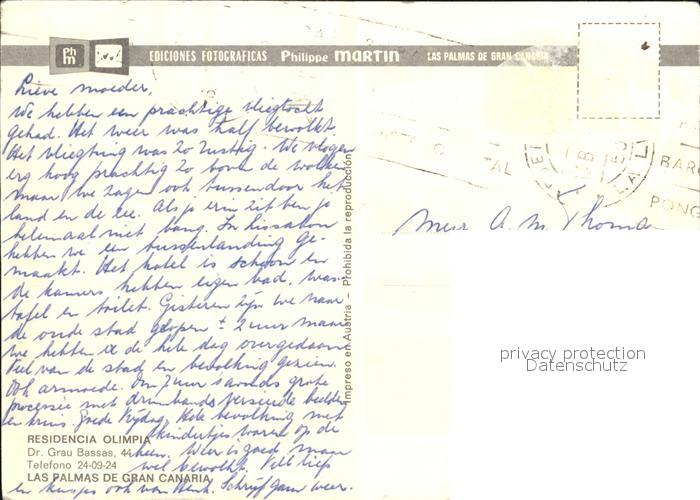 EDICIONES FOTOGRAFICAS Philippe MARTIN LAS PALMAS DE GRAN CANARIA
phm
Lieve moeder,
We hebben een prachtige vliegtocht
gehad. Het weer was half bewolkt
Het vliegtuig was zo rustig. We vlogen
erg hoog prachtig zo boven de wolken
maar we zagen ook tussendoor het
land en de zee. Als je erin zit ben je
helemaal niet bang. In Lissabon
hebben we een tussenlanding ge-
maakt. Het hotel is schoon en
de kamers hebben eigen bad, was-
tafel en toilet. Gisteren zijn we naar
de oude stad gelopen ± 2 uur maar
we hebben er de hele dag overgedaan
Veel van de stad en bevolking gezien.
Ook armoede. Om 7 uur s'avonds grote
processie met drumbands versierde beelden
en kruis Goede Vrijdag. Hele bevolking met
kindertjes waren op de
been. Weer is goed maar
wel bewolkt. Veel liefs
en kusjes ook van Henk. Schrijf gauw weer.
RESIDENCIA OLIMPIA
Dr. Grau Bassas, 44
Telefono 24-09-24
LAS PALMAS DE GRAN CANARIA
Impreso en Austria - Prohibida la reproducción
Mevr A. M. Thoma
BAR
PONG
privacy protection
Datenschutz